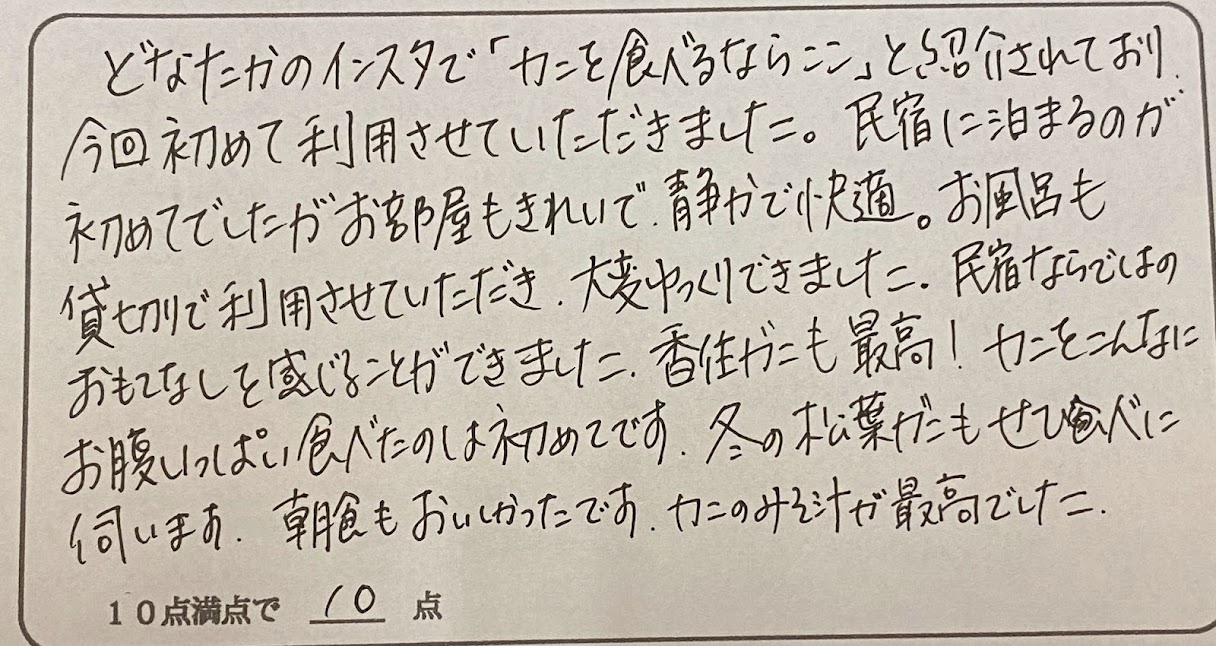 どなたかのインスタで「カニを食べるならここ」と紹介されており、
今回初めて利用させていただきました。民宿に泊まるのが
初めてでしたがお部屋もきれいで、静かで快適。お風呂も
貸切りで利用させていただき、大変ゆっくりできました。民宿ならではの
おもてなしを感じることができました。香住ガニも最高!カニをこんなに
お腹いっぱい食べたのは初めてです。冬の松葉ガニもぜひ食べに
伺います。朝食もおいしかったです。カニのみそ汁が最高でした。
10点満点で 10 点